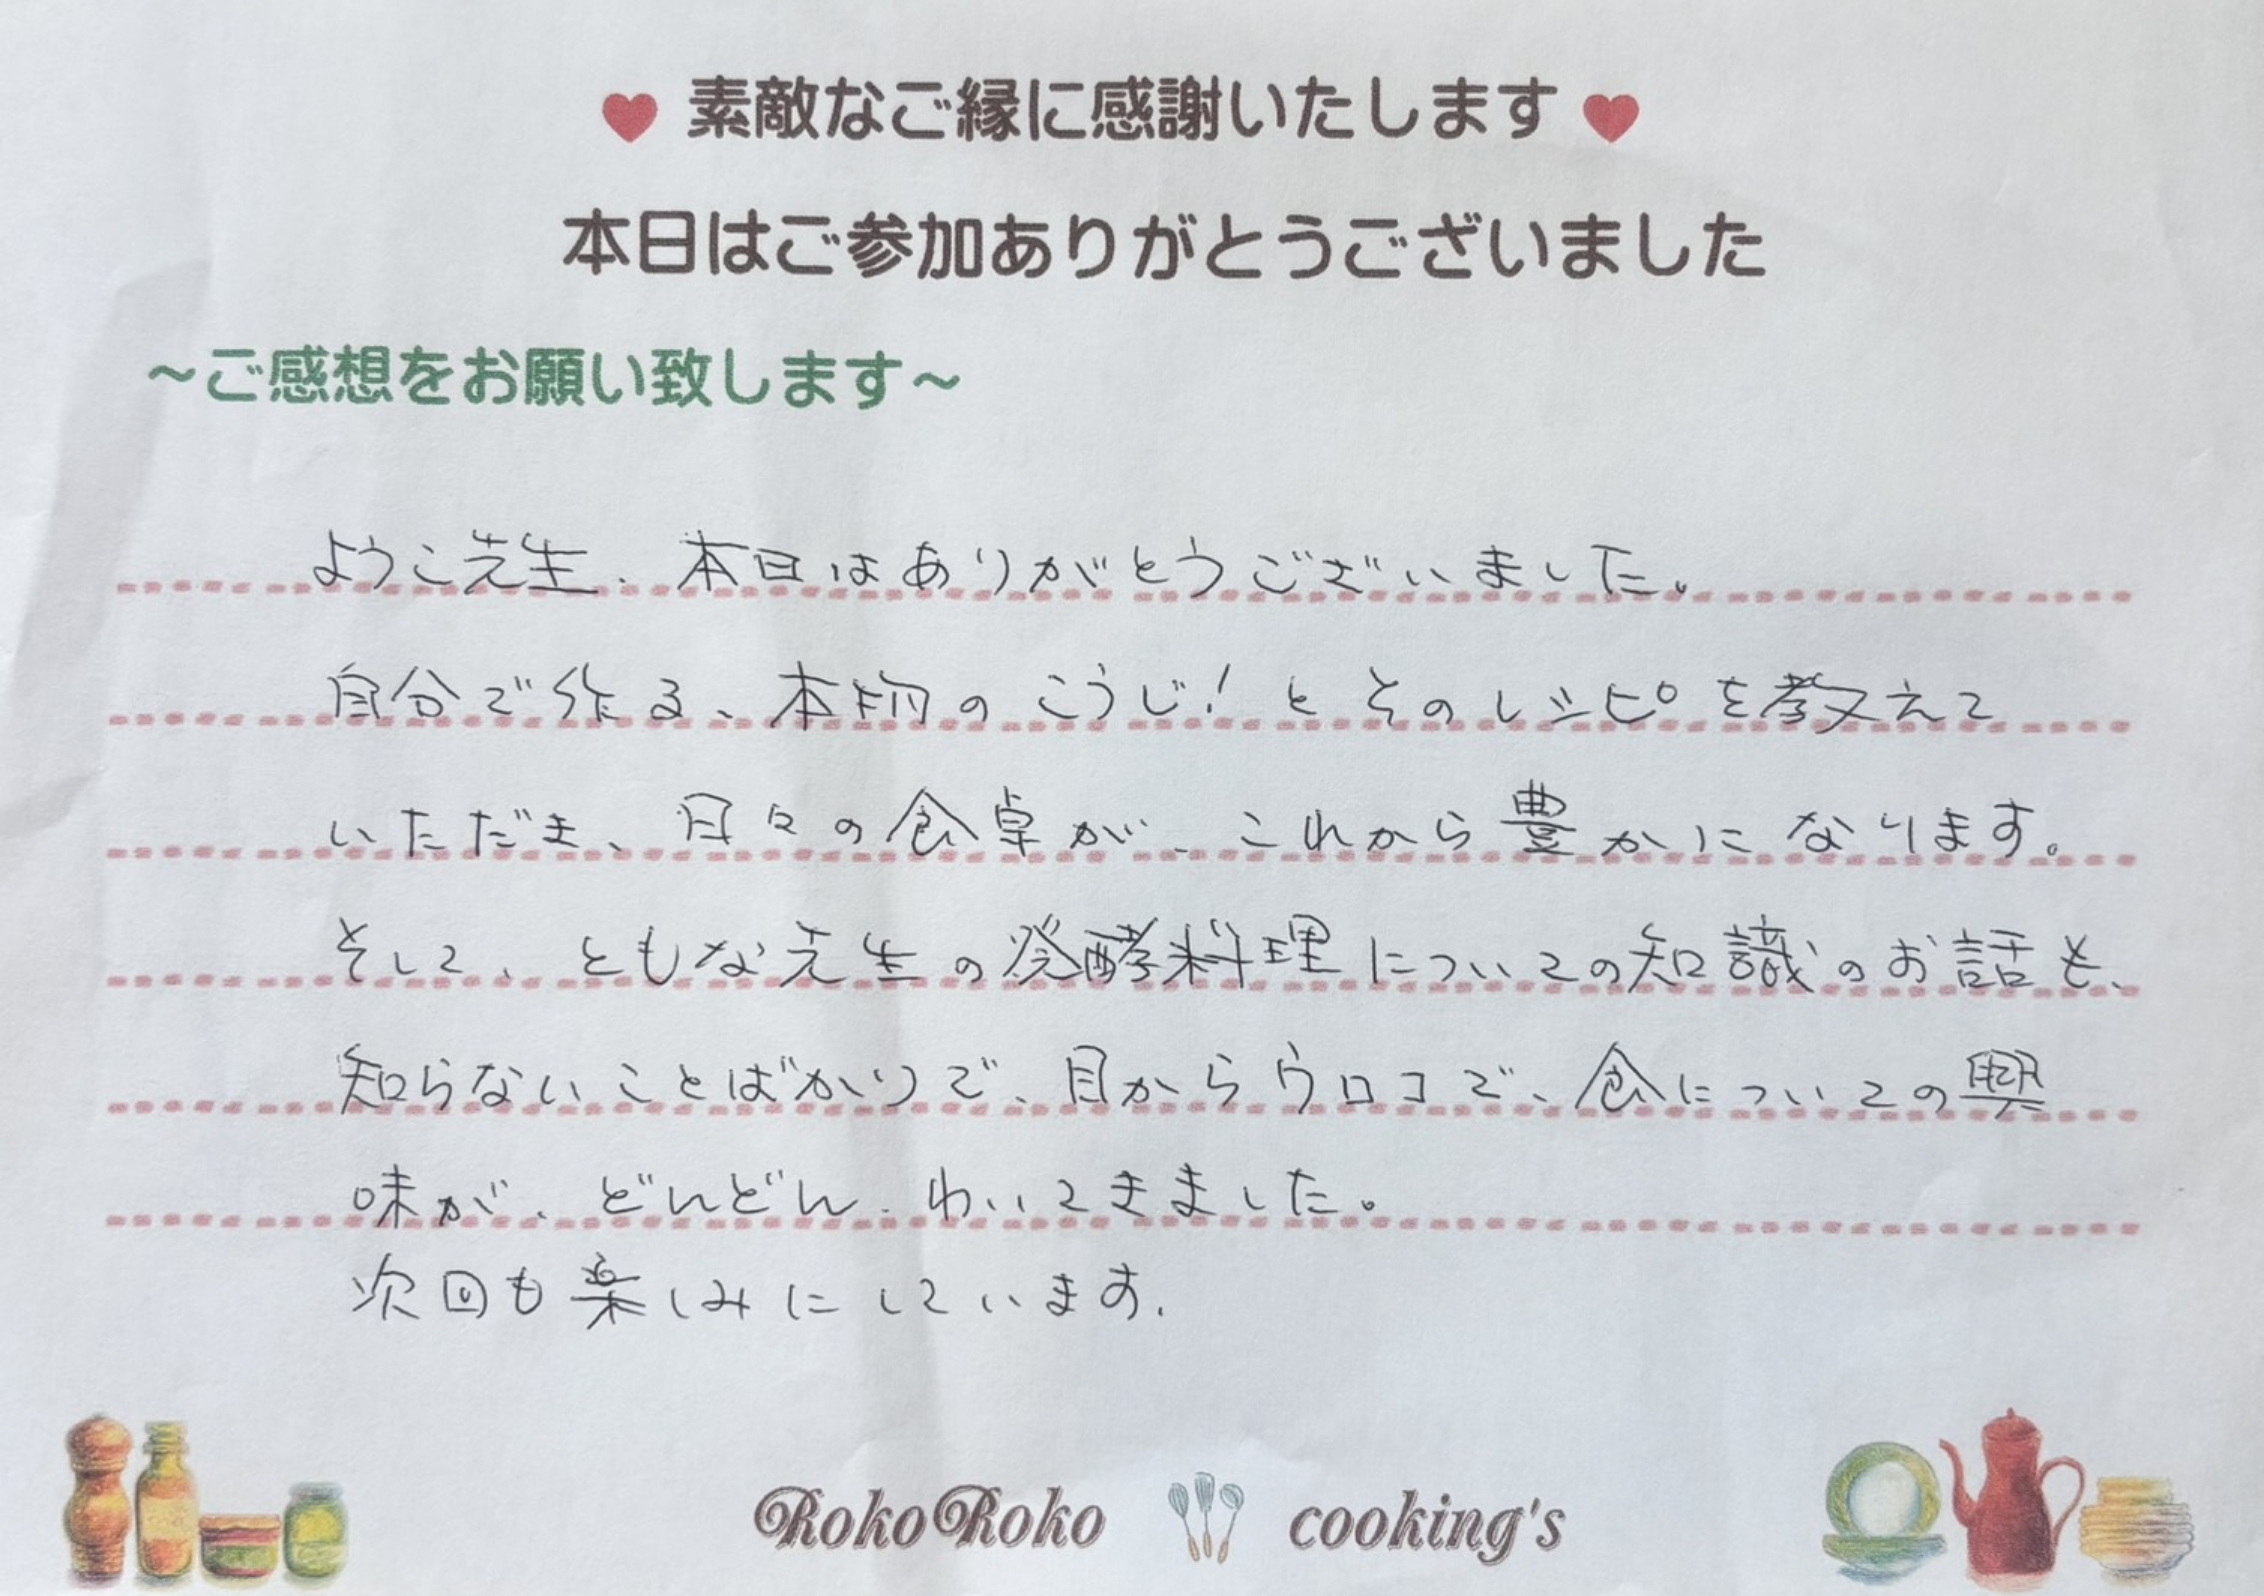 ♥ 素敵なご縁に感謝いたします ♥
本日はご参加ありがとうございました
～ご感想をお願い致します～
ようこ先生、本日はありがとうございました。
自分で作る、本物のこうじ！とそのレシピを教えて
いただき、日々の食卓が、これから豊かになります。
そして、ともな先生の発酵料理についての知識のお話も、
知らないことばかりで、目からウロコで、食についての興
味が、どんどん、わいてきました。
次回も楽しみにしています。
RokoRoko cooking's